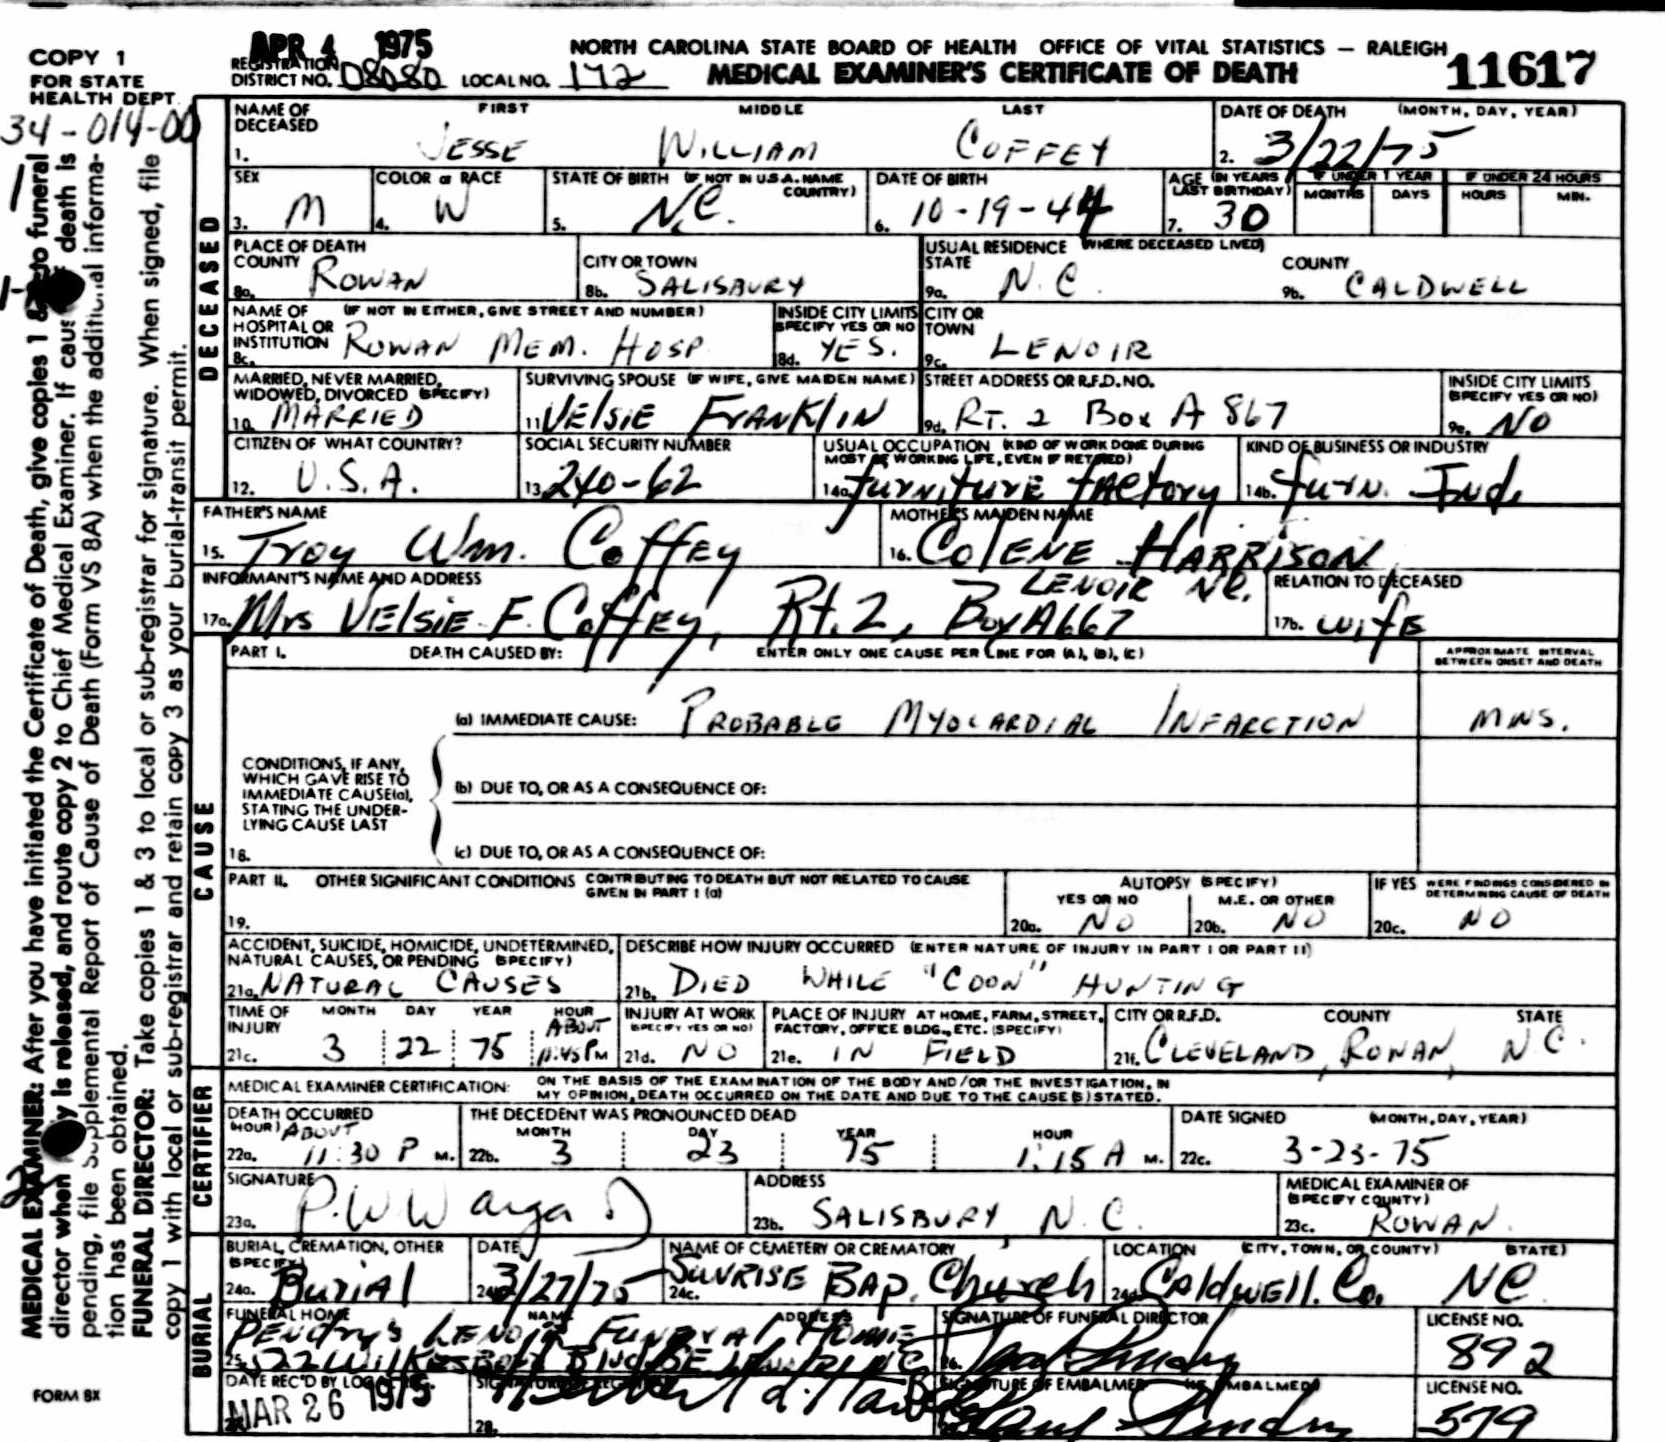 COPY 1
FOR STATE
HEALTH DEPT.
34-014-00
APR 4 1975
NORTH CAROLINA STATE BOARD OF HEALTH OFFICE OF VITAL STATISTICS — RALEIGH
11617
REGISTRATION
DISTRICT NO. 08080 LOCAL NO. 172
MEDICAL EXAMINER'S CERTIFICATE OF DEATH
MEDICAL EXAMINER: After you have initiated the Certificate of Death, give copies 1 & to funeral
director when is released, and route copy 2 to Chief Medical Examiner. If cause death is
pending, file Supplemental Report of Cause of Death (Form VS 8A) when the additional informa-
tion has been obtained.
FUNERAL DIRECTOR: Take copies 1 & 3 to local or sub-registrar for signature. When signed, file
copy 1 with local or sub-registrar and retain copy 3 as your burial-transit permit.
DECEASED
NAME OF DECEASED FIRST MIDDLE LAST
1. JESSE WILLIAM COFFEY
DATE OF DEATH (MONTH, DAY, YEAR)
2. 3/22/75
SEX
3. M
COLOR or RACE
4. W
STATE OF BIRTH (IF NOT IN U.S.A. NAME COUNTRY)
5. N.C.
DATE OF BIRTH
6. 10-19-44
AGE (IN YEARS LAST BIRTHDAY)
7. 30
IF UNDER 1 YEAR
MONTHS DAYS
IF UNDER 24 HOURS
HOURS MIN.
PLACE OF DEATH
COUNTY
8a. ROWAN
CITY OR TOWN
8b. SALISBURY
USUAL RESIDENCE (WHERE DECEASED LIVED)
STATE
9a. N.C.
COUNTY
9b. CALDWELL
NAME OF HOSPITAL OR INSTITUTION (IF NOT IN EITHER, GIVE STREET AND NUMBER)
8c. ROWAN MEM. HOSP.
INSIDE CITY LIMITS (SPECIFY YES OR NO)
8d. YES.
CITY OR TOWN
9c. LENOIR
MARRIED, NEVER MARRIED, WIDOWED, DIVORCED (SPECIFY)
10. MARRIED
SURVIVING SPOUSE (IF WIFE, GIVE MAIDEN NAME)
11. VELSIE FRANKLIN
STREET ADDRESS OR R.F.D. NO.
9d. RT. 2 BOX A 867
INSIDE CITY LIMITS (SPECIFY YES OR NO)
9e. NO
CITIZEN OF WHAT COUNTRY?
12. U.S.A.
SOCIAL SECURITY NUMBER
13. 240-62
USUAL OCCUPATION (KIND OF WORK DONE DURING MOST OF WORKING LIFE, EVEN IF RETIRED)
14a. furniture factory
KIND OF BUSINESS OR INDUSTRY
14b. furn. Ind.
FATHER'S NAME
15. Troy Wm. Coffey
MOTHER'S MAIDEN NAME
16. COLENE HARRISON
INFORMANT'S NAME AND ADDRESS
LENOIR NC.
17a. Mrs VELSIE F. Coffey, Rt. 2, Box A667
RELATION TO DECEASED
17b. wife
CAUSE
PART I. DEATH CAUSED BY: ENTER ONLY ONE CAUSE PER LINE FOR (A), (B), (C)
APPROXIMATE INTERVAL BETWEEN ONSET AND DEATH
(a) IMMEDIATE CAUSE: PROBABLE MYOCARDIAL INFARCTION MINS.
CONDITIONS, IF ANY,
WHICH GAVE RISE TO
IMMEDIATE CAUSE(a),
STATING THE UNDER-
LYING CAUSE LAST
(b) DUE TO, OR AS A CONSEQUENCE OF:
(c) DUE TO, OR AS A CONSEQUENCE OF:
18.
PART II. OTHER SIGNIFICANT CONDITIONS CONTRIBUTING TO DEATH BUT NOT RELATED TO CAUSE GIVEN IN PART I (a)
19.
AUTOPSY (SPECIFY)
YES OR NO
20a. NO
M.E. OR OTHER
20b. NO
IF YES WERE FINDINGS CONSIDERED IN DETERMINING CAUSE OF DEATH
20c. NO
ACCIDENT, SUICIDE, HOMICIDE, UNDETERMINED, NATURAL CAUSES, OR PENDING (SPECIFY)
21a. NATURAL CAUSES
DESCRIBE HOW INJURY OCCURRED (ENTER NATURE OF INJURY IN PART I OR PART II)
21b. DIED WHILE "COON" HUNTING
TIME OF INJURY MONTH DAY YEAR HOUR
21c. 3 22 75 ABOUT 11:45 PM
INJURY AT WORK (SPECIFY YES OR NO)
21d. NO
PLACE OF INJURY AT HOME, FARM, STREET, FACTORY, OFFICE BLDG., ETC. (SPECIFY)
21e. IN FIELD
CITY OR R.F.D. COUNTY STATE
21f. CLEVELAND, ROWAN, N.C.
CERTIFIER
MEDICAL EXAMINER CERTIFICATION: ON THE BASIS OF THE EXAMINATION OF THE BODY AND/OR THE INVESTIGATION, IN
MY OPINION, DEATH OCCURRED ON THE DATE AND DUE TO THE CAUSE(S) STATED.
DEATH OCCURRED (HOUR)
22a. ABOUT 11:30 P M.
THE DECEDENT WAS PRONOUNCED DEAD
MONTH DAY YEAR HOUR
22b. 3 23 75 1:15 A M.
DATE SIGNED (MONTH, DAY, YEAR)
22c. 3-23-75
SIGNATURE
23a. P.W.W
ADDRESS
23b. SALISBURY N.C.
MEDICAL EXAMINER OF (SPECIFY COUNTY)
23c. ROWAN
BURIAL
BURIAL, CREMATION, OTHER (SPECIFY)
24a. Burial
DATE
24b. 3/27/75
NAME OF CEMETERY OR CREMATORY
24c. SUNRISE BAP. Church
LOCATION (CITY, TOWN, OR COUNTY) (STATE)
24d. Caldwell. Co. NC
FUNERAL HOME NAME ADDRESS
Pendry's LENOIR FUNERAL HOME
25.
SIGNATURE OF FUNERAL DIRECTOR
26.
LICENSE NO.
892
DATE REC'D BY LOCAL REG.
MAR 26 1975
SIGNATURE OF REGISTRAR
28.
SIGNATURE OF EMBALMER (IF EMBALMED)
LICENSE NO.
579
FORM 8X